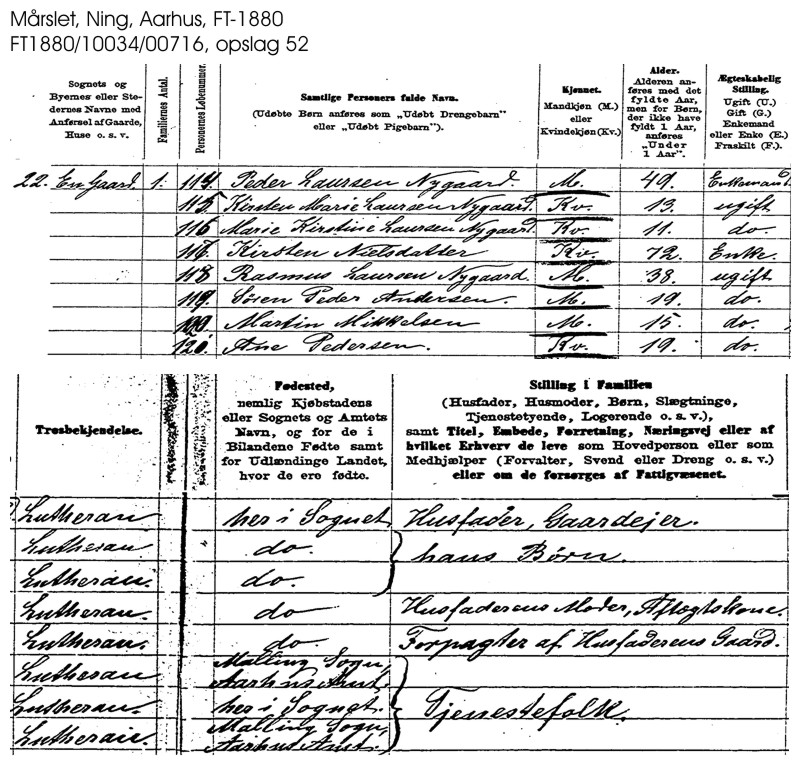 Mårslet, Ning, Aarhus, FT-1880
FT1880/10034/00716, opslag 52
Sognets og
Byernes eller Ste-
dernes Navne med
Anførsel af Gaarde,
Huse o. s. v.
Familiernes Antal.
Personernes Løbenummer.
Samtlige Personers fulde Navn.
(Udøbte Børn anføres som „Udøbt Drengebarn"
eller „Udøbt Pigebarn").
Kjønnet.
Mandkjøn (M.)
eller
Kvindekjøn (Kv.)
Alder.
Alderen an-
føres med det
fyldte Aar,
men for Børn,
der ikke have
fyldt 1 Aar,
anføres
„Under
1 Aar".
Ægteskabelig
Stilling.
Ugift (U.)
Gift (G.)
Enkemand
eller Enke (E.)
Fraskilt (F.).
22. En Gaard. 1. 114. Peder Laursen Nygaard. M. 49. Enkemand
115. Kirsten Marie Laursen Nygaard. Kv. 13. ugift
116. Marie Kirstine Laursen Nygaard. Kv. 11. do.
117. Kirsten Nielsdatter Kv. 72. Enke.
118. Rasmus Laursen Nygaard. M. 38. ugift
119. Søren Peder Andersen. M. 19. do.
120. Martin Mikkelsen M. 15. do.
121. Ane Pedersen. Kv. 19. do.
Trosbekjendelse.
Fødested,
nemlig Kjøbstadens
eller Sognets og Amtets
Navn, og for de i
Bilandene Fødte samt
for Udlændinge Landet,
hvor de ere fødte.
Stilling i Familien
(Husfader, Husmoder, Børn, Slægtninge,
Tjenestetyende, Logerende o. s. v.),
samt Titel, Embede, Forretning, Næringsvej eller af
hvilket Erhverv de leve som Hovedperson eller som
Medhjælper (Forvalter, Svend eller Dreng o. s. v.)
eller om de forsørges af Fattigvæsenet.
Lutheran her i Sognet Husfader, Gaardejer.
Lutheran do. hans Børn.
Lutheran. do.
Lutheran. do Husfaderens Moder, Aftægtskone.
Lutheran. do. Forpagter af Husfaderens Gaard.
Lutheran Malling Sogn,
Aarhus Amt.
Lutheran. her i Sognet. Tjenestefolk.
Lutheran. Malling Sogn,
Aarhus Amt.